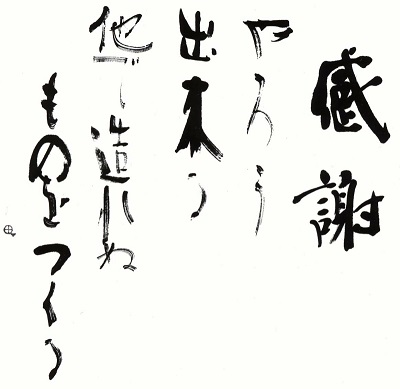 感謝
やろう
出来る
他が造れぬ
ものをつくる